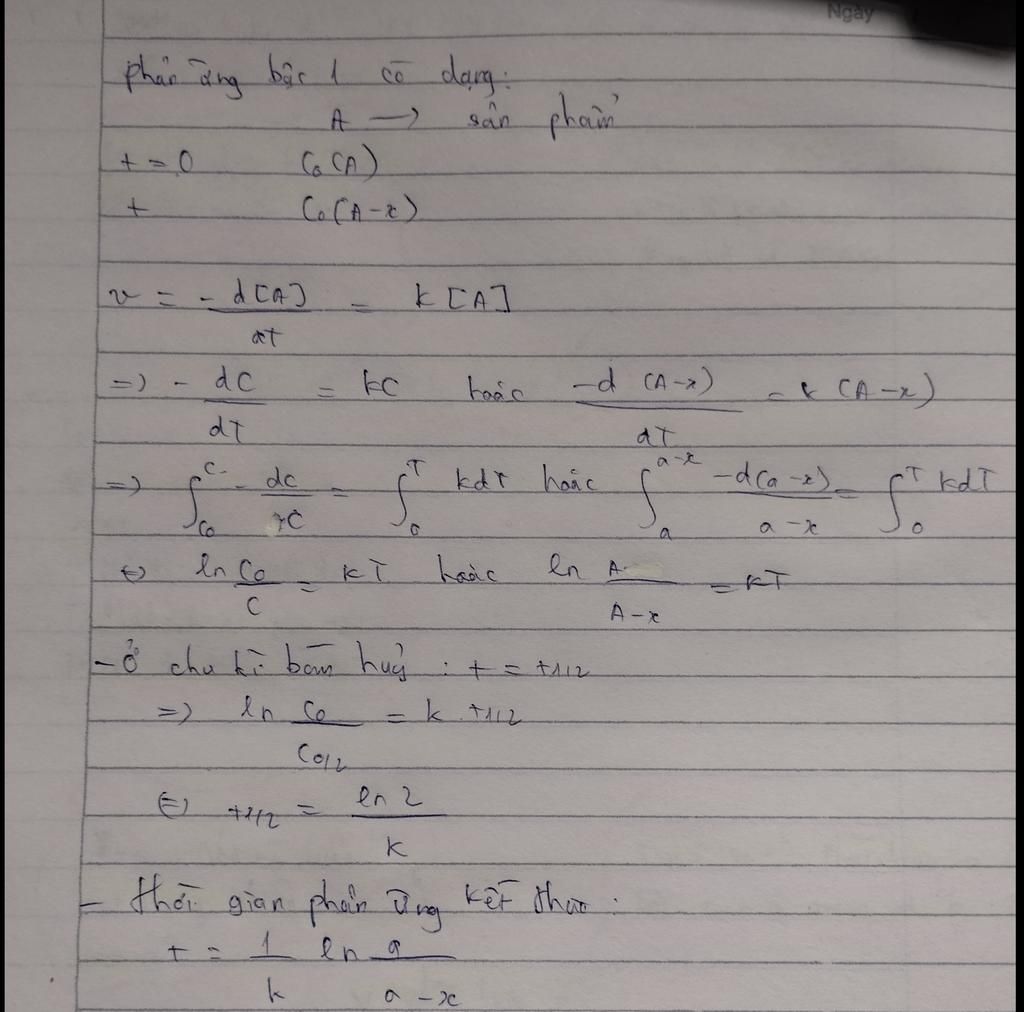 Ngày
phản ứng bậc 1 có dạng:
A → sản phẩm
t = 0 C₀ (A)
t C₀ (A-x)
v = -d[A]/dT = k [A]
=> - dC/dT = kC hoặc -d (A-x)/dT = k (A-x)
=> ∫_{C₀}^{C} - dC/C = ∫_0^T kdT hoặc ∫_a^{a-x} -d(a-x)/a-x = ∫_0^T kdT
⇔ ln C₀/C = kT hoặc ln A/A-x = kT
- Ở chu kì bán huỷ : t = t1/2
=> ln C₀/C₀/2 = k . t1/2
⇔ t1/2 = ln 2/k
- thời gian phản ứng kết thúc :
t = 1/k ln a/a-x